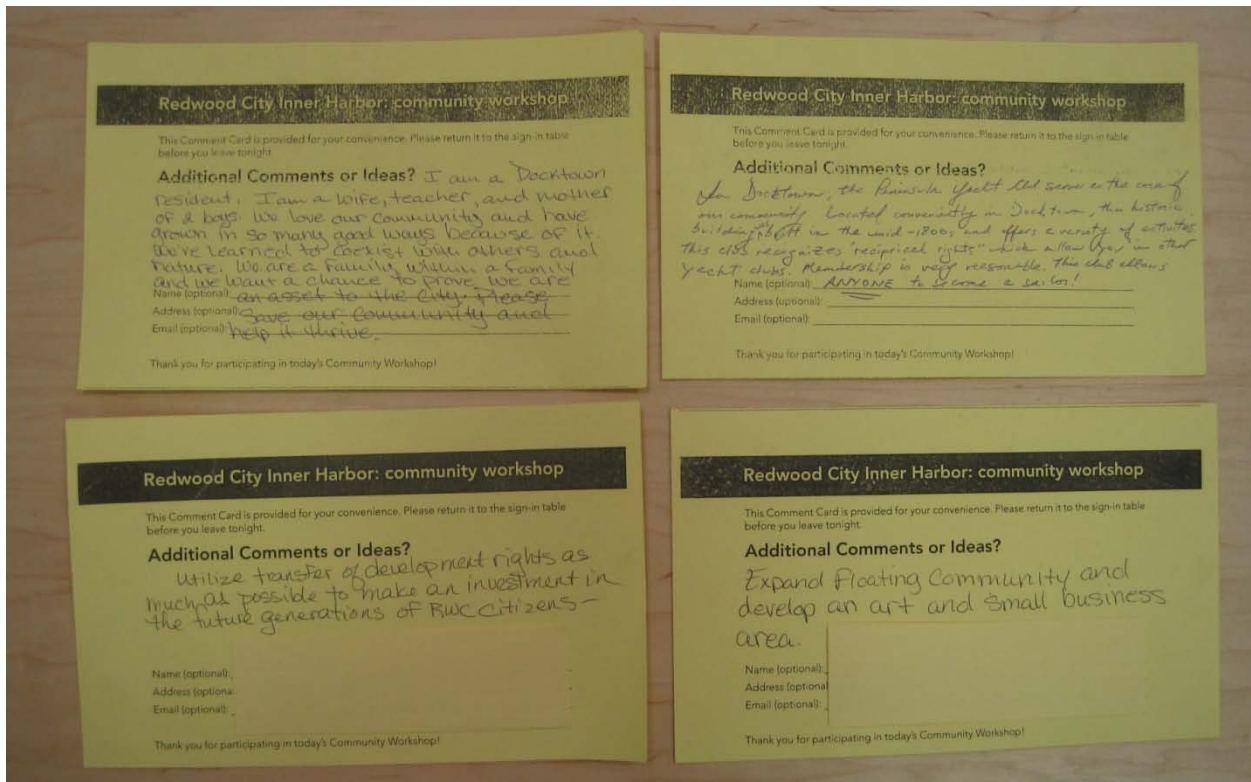 Redwood City Inner Harbor: community workshop
This Comment Card is provided for your convenience. Please return it to the sign-in table
before you leave tonight.
Additional Comments or Ideas? I am a Docktown
resident. I am a wife, teacher, and mother
of 2 boys. We love our community and have
grown in so many good ways because of it.
We've learned to coexist with others and
nature. We are a family within a family
and we want a chance to prove we are
Name (optional): an asset to the city. Please
Address (optional): save our community and
Email (optional): help it thrive.
Thank you for participating in today's Community Workshop!
Redwood City Inner Harbor: community workshop
This Comment Card is provided for your convenience. Please return it to the sign-in table
before you leave tonight.
Additional Comments or Ideas?
In Docktown, the Peninsula Yacht Club serves as the core of
our community. Located conveniently in Docktown, this historic
building built in the mid-1800s, and offers a variety of activities
This club recognizes "reciprical rights" which allow in other
yacht clubs. Membership is very reasonable. This club allows
Name (optional): ANYONE to become a sailor!
Address (optional):
Email (optional):
Thank you for participating in today's Community Workshop!
Redwood City Inner Harbor: community workshop
This Comment Card is provided for your convenience. Please return it to the sign-in table
before you leave tonight.
Additional Comments or Ideas?
Utilize transfer of development rights as
much as possible to make an investment in
the future generations of RWC citizens-
Name (optional):
Address (optiona
Email (optional):
Thank you for participating in today's Community Workshop!
Redwood City Inner Harbor: community workshop
This Comment Card is provided for your convenience. Please return it to the sign-in table
before you leave tonight.
Additional Comments or Ideas?
Expand Floating Community and
develop an art and small business
area.
Name (optional):
Address (optional
Email (optional):
Thank you for participating in today's Community Workshop!